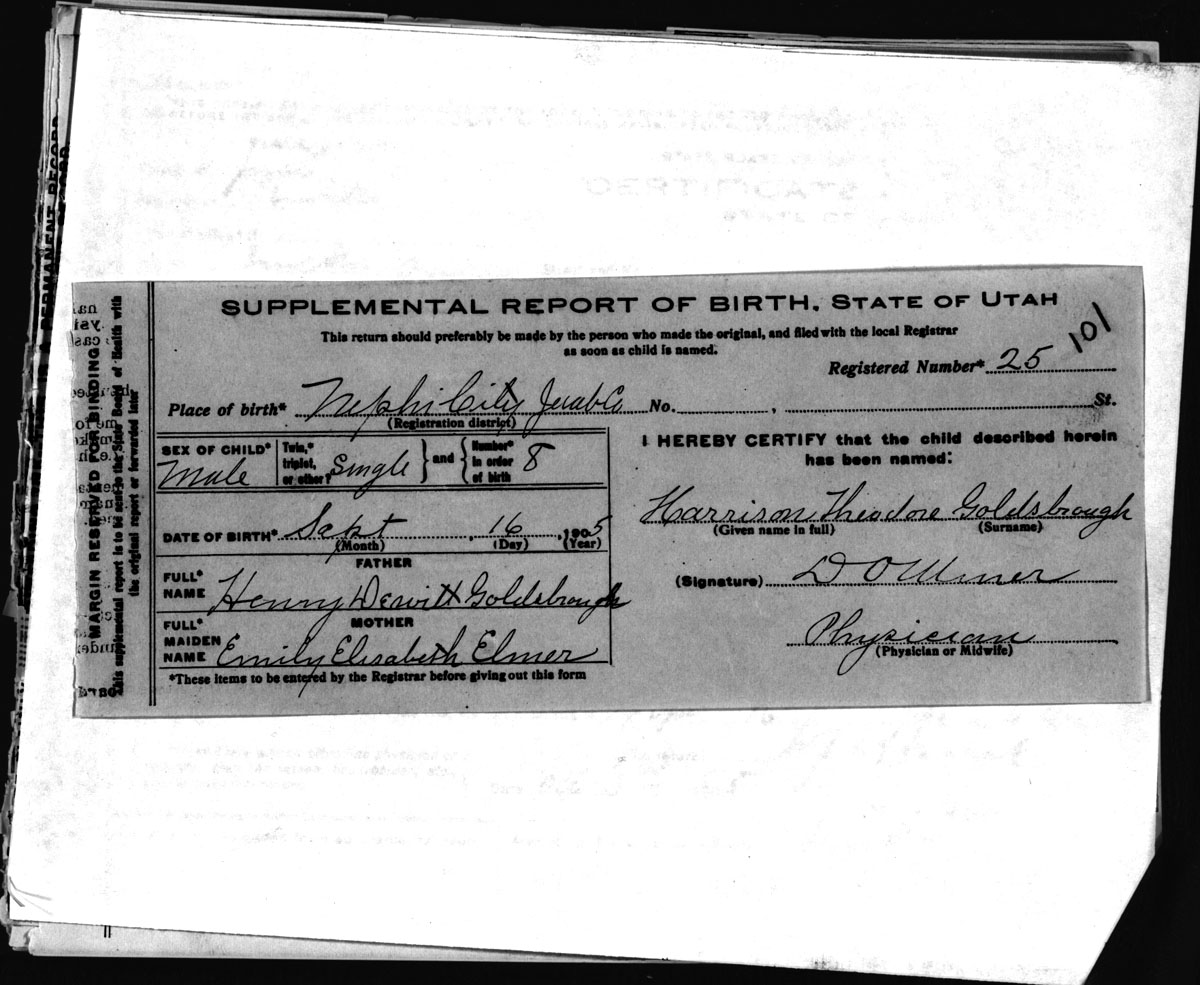 SUPPLEMENTAL REPORT OF BIRTH, STATE OF UTAH
This return should preferably be made by the person who made the original, and filed with the local Registrar
as soon as child is named.
101
Registered Number* 25
Place of birth* Nephi City Juab Co No. , St.
(Registration district)
SEX OF CHILD* Male
Twin,* triplet, or other? Single } and { Number* in order of birth 8
DATE OF BIRTH* Sept 16, 1905
(Month) (Day) (Year)
FATHER
FULL* NAME Henry Dewitt Goldsbrough
MOTHER
FULL* MAIDEN NAME Emily Elisabeth Elmer
*These items to be entered by the Registrar before giving out this form
I HEREBY CERTIFY that the child described herein
has been named:
Harrison Theodore Goldsbrough
(Given name in full) (Surname)
(Signature)
Physician
(Physician or Midwife)
MARGIN RESERVED FOR BINDING
This supplemental report is to be sent to the State Board of Health with
the original report or forwarded later
PERMANENT RECORD